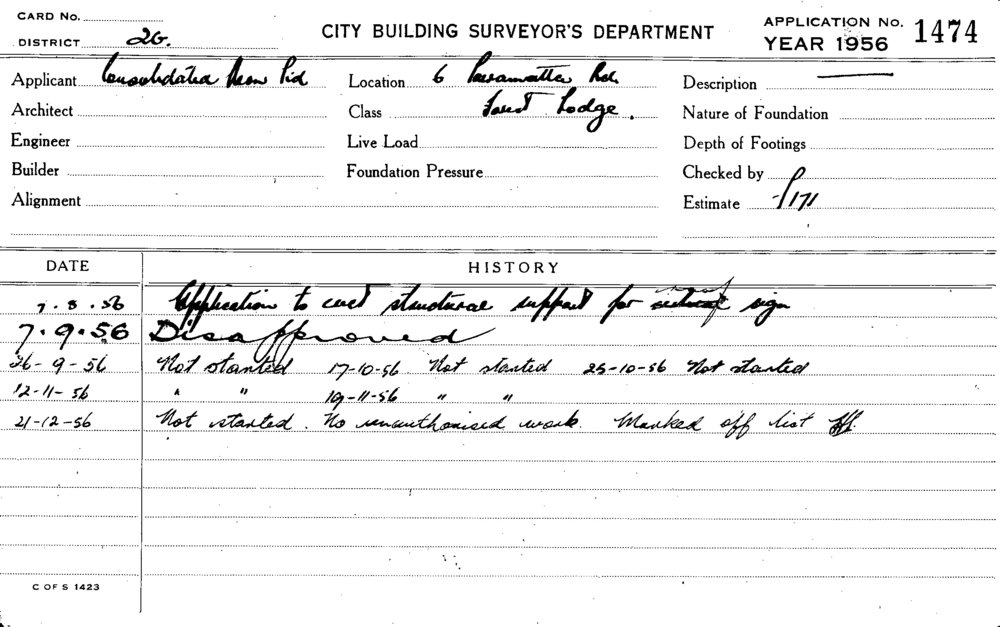 CARD No.
DISTRICT 26.
CITY BUILDING SURVEYOR'S DEPARTMENT
APPLICATION No. 1474
YEAR 1956
Applicant Consolidated Neon Pld
Location 6 Parramatta Rd.
Description
Architect
Class Forest Lodge.
Nature of Foundation
Engineer
Live Load
Depth of Footings
Builder
Foundation Pressure
Checked by
Alignment
Estimate £171
DATE HISTORY
7.8.56 Application to erect structural support for roof sign
7.9.56 Disapproved
26-9-56 Not started 17-10-56 Not started 25-10-56 Not started
12-11-56 " " 19-11-56 " "
21-12-56 Not started. No unauthorised work. Marked off list
C OF S 1423